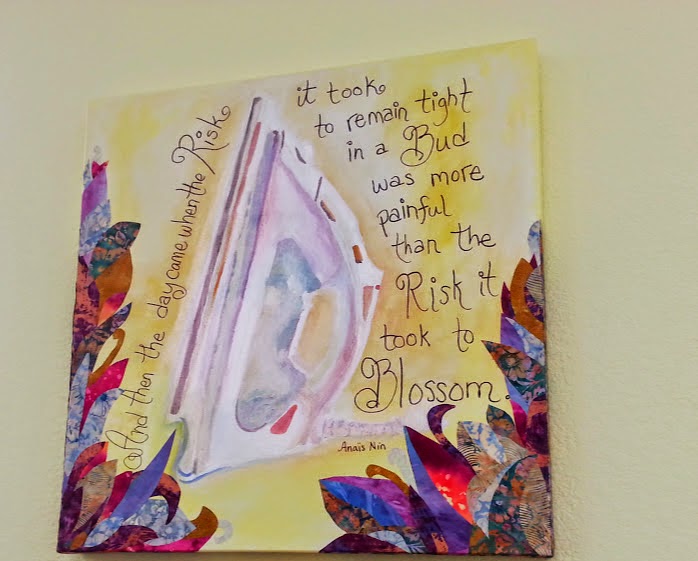 And then the day came when the Risk
it took
to remain tight
in a Bud
was more
painful
than the
Risk it
took to
Blossom.
Anaïs Nin